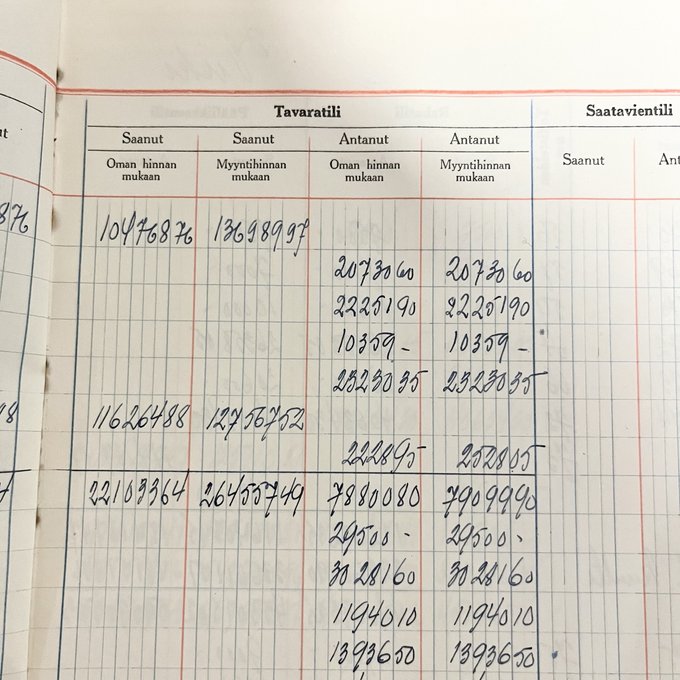 Tavaratili Saatavientili
Saanut Saanut Antanut Antanut
Oman hinnan mukaan Myyntihinnan mukaan Oman hinnan mukaan Myyntihinnan mukaan Saanut Ant
10476876 13698997
2073060 2073060
2225190 2225190
10359 - 10359 -
2323035 2323035
11626488 12756752
222895 252805
22103364 26455749 7880080 7909990
29500 - 29500 -
3028160 3028160
1194010 1194010
1393650 1393650